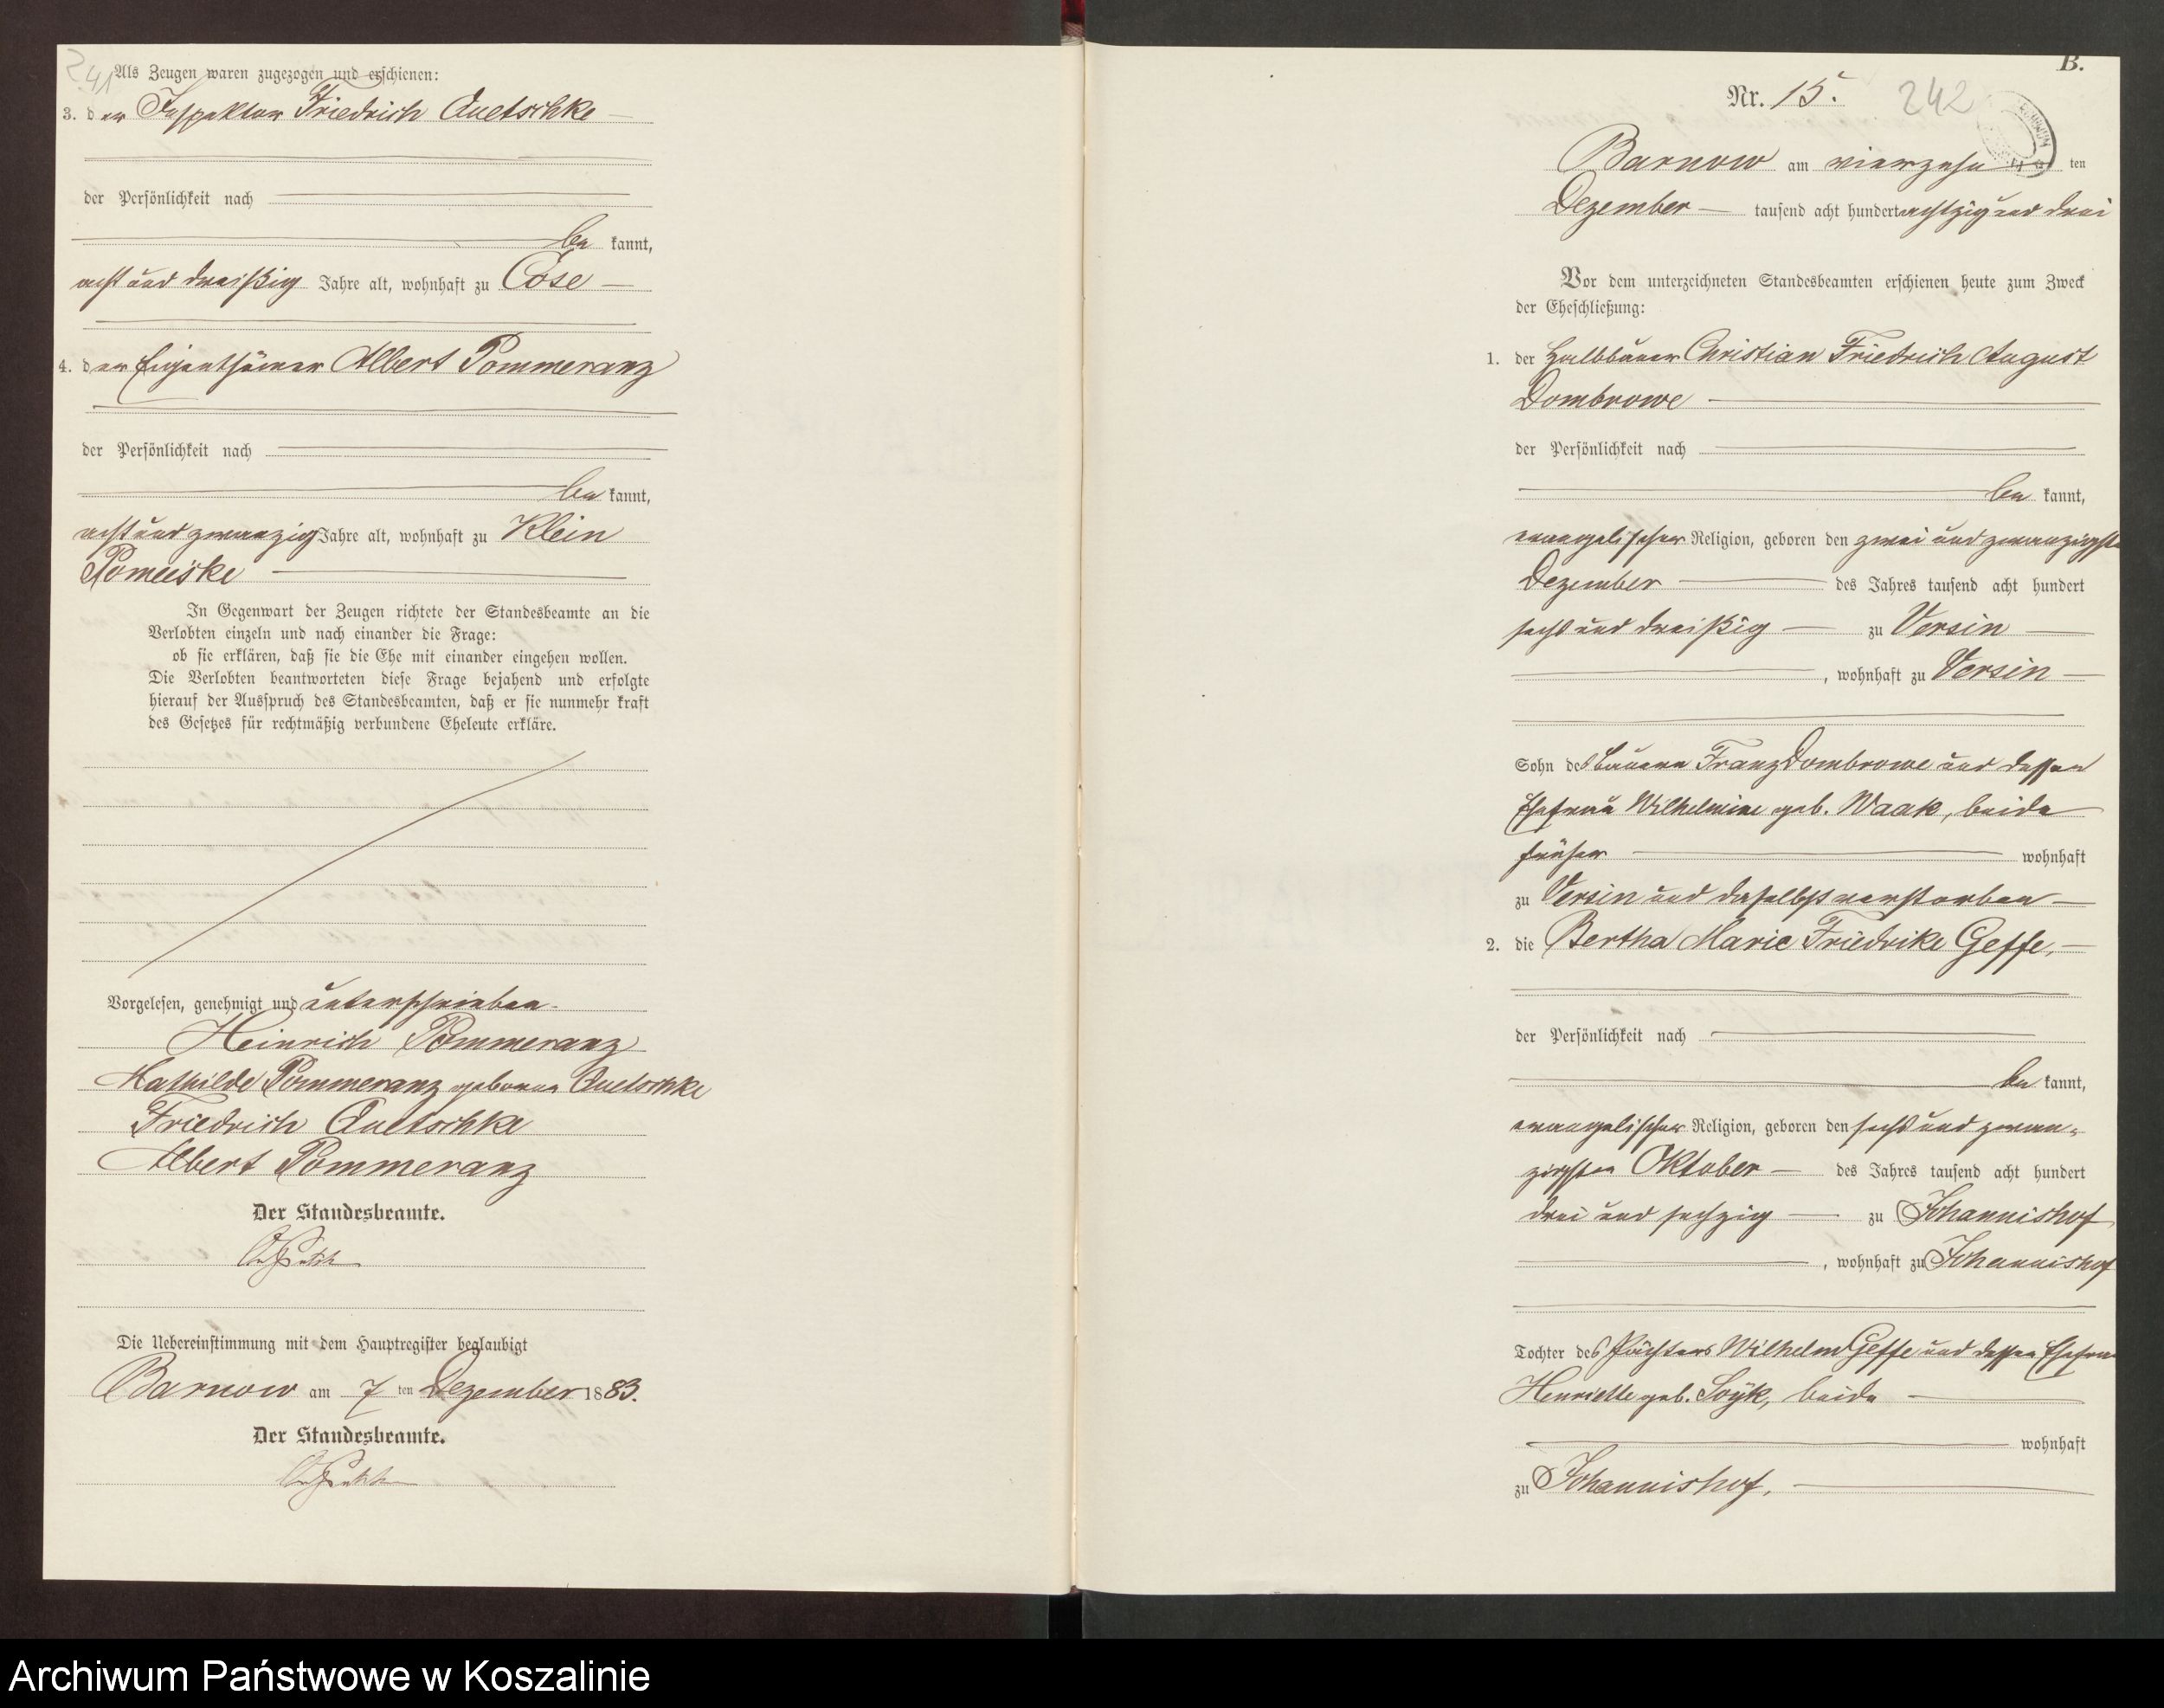 241
Als Zeugen waren zugezogen und erschienen:
3. der Inspektor Friedrich Quetschke
der Persönlichkeit nach
be kannt,
acht und dreißig Jahre alt, wohnhaft zu Cose
4. der Eigenthümer Albert Pommeranz
der Persönlichkeit nach
be kannt,
acht und zwanzig Jahre alt, wohnhaft zu Klein
Pomeiske
In Gegenwart der Zeugen richtete der Standesbeamte an die
Verlobten einzeln und nach einander die Frage:
ob sie erklären, daß sie die Ehe mit einander eingehen wollen.
Die Verlobten beantworteten diese Frage bejahend und erfolgte
hierauf der Ausspruch des Standesbeamten, daß er sie nunmehr kraft
des Gesetzes für rechtmäßig verbundene Eheleute erkläre.
Vorgelesen, genehmigt und unterschrieben.
Heinrich Pommeranz
Mathilde Pommeranz geborene Quetschke
Friedrich Quetschke
Albert Pommeranz
Der Standesbeamte.
Die Uebereinstimmung mit dem Hauptregister beglaubigt
Barnow am 7 ten Dezember 1883.
Der Standesbeamte.
B.
Nr. 15.
242
Barnow am vierzehn ten
Dezember tausend acht hundert achtzig und drei
Vor dem unterzeichneten Standesbeamten erschienen heute zum Zweck
der Eheschließung:
1. der Halbbauer Christian Friedrich August
Dombrowe
der Persönlichkeit nach
be kannt,
evangelischer Religion, geboren den zwei und zwanzigsten
Dezember des Jahres tausend acht hundert
sechs und dreißig zu Versin
, wohnhaft zu Versin
Sohn des Bauern Franz Dombrowe und dessen
Ehefrau Wilhelmine geb. Waak, beide
früher wohnhaft
zu Versin und daselbst verstorben
2. die Bertha Marie Friedrike Geffe,
der Persönlichkeit nach
be kannt,
evangelischer Religion, geboren den sechs und zwan-
zigsten Oktober des Jahres tausend acht hundert
drei und sechzig zu Johannishof
, wohnhaft zu Johannishof
Tochter des Pächters Wilhelm Geffe und dessen Ehefrau
Henriette geb. Soyk, beide
wohnhaft
zu Johannishof.
Archiwum Państwowe w Koszalinie